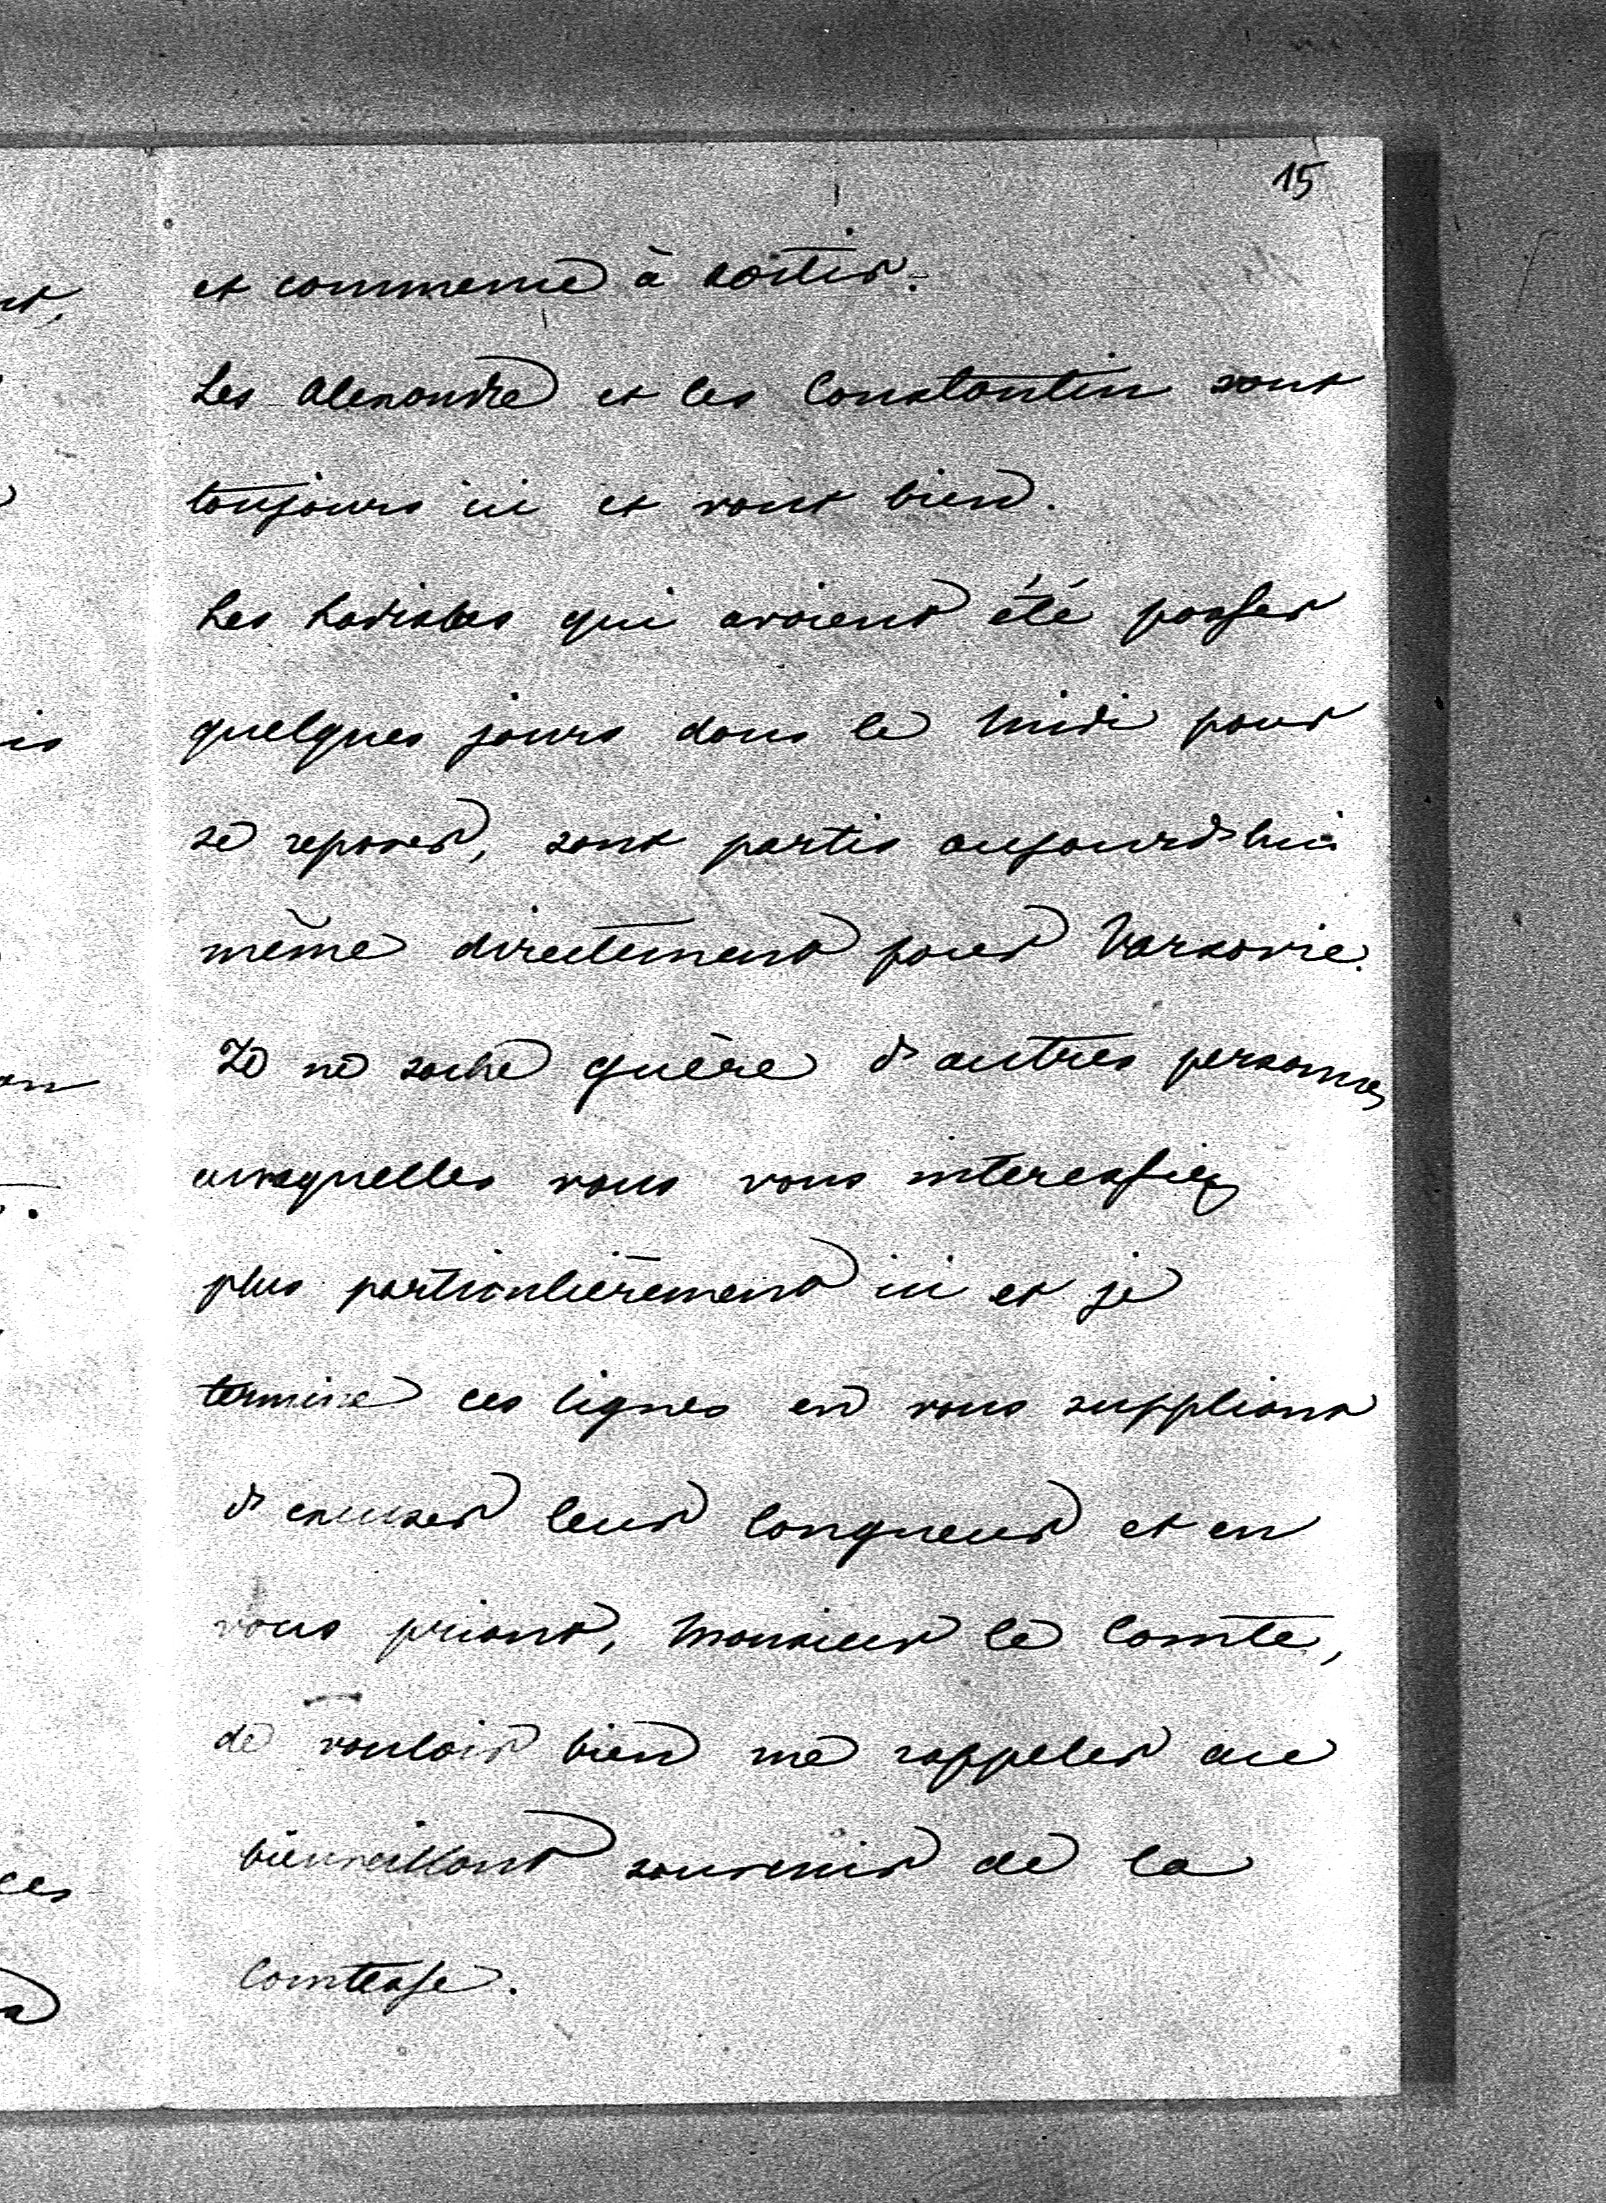 15
et commence à sortir.
Les Alexandre et les Constantin sont
toujours ici et vont bien.
Les Ladislas qui avaient été passer
quelques jours dans le Midi pour
se reposer, sont partis aujourd'hui
même directement pour Varsovie.
Je ne sache guère d'autres personnes
auxquelles vous vous interessiez
plus particulièrement ici et je
termine ces lignes en vous suppliant
d'excuser leur longueur et en
vous priant, Monsieur le Comte,
de vouloir bien me rappeler au
bienveillant souvenir de la
Comtesse.